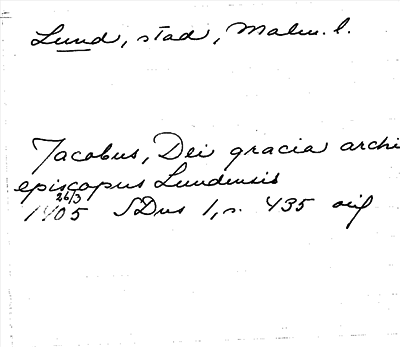 Lund, stad, Malm. l.
Jacobus, Dei gracia archi
episcopus Lundensis
26/3
1405 SDns 1, s. 435 orig